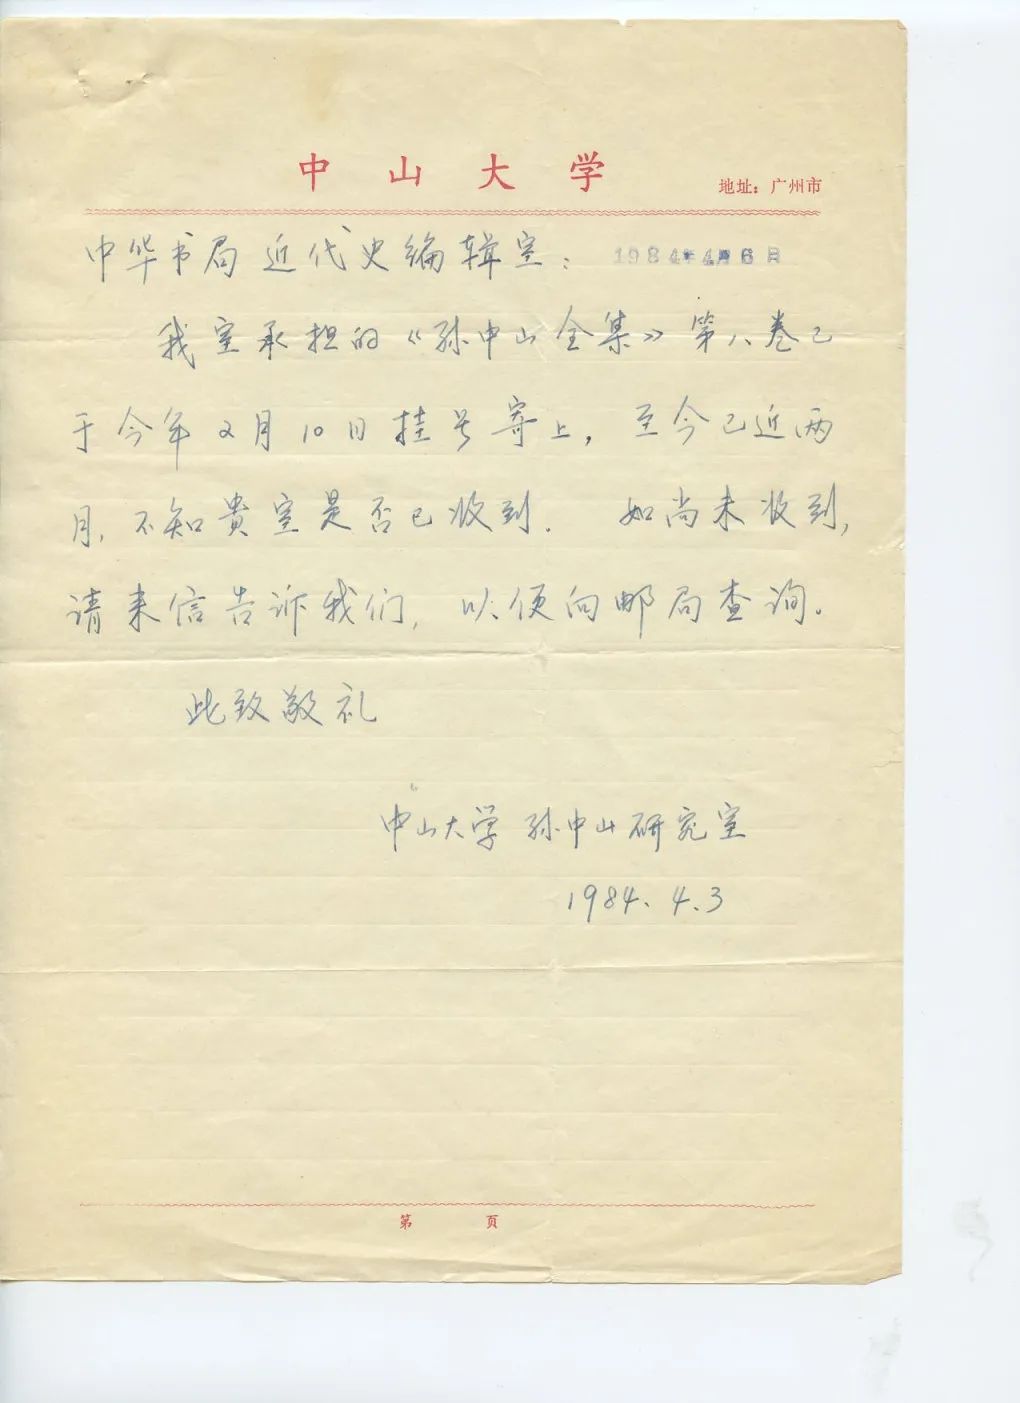 中山大学
地址：广州市
中华书局近代史编辑室： 1984年4月6日
我室承担的《孙中山全集》第八卷已
于今年2月10日挂号寄上，至今已近两
月，不知贵室是否已收到．如尚未收到，
请来信告诉我们，以便向邮局查询．
此致敬礼
中山大学孙中山研究室
1984.4.3
第 页